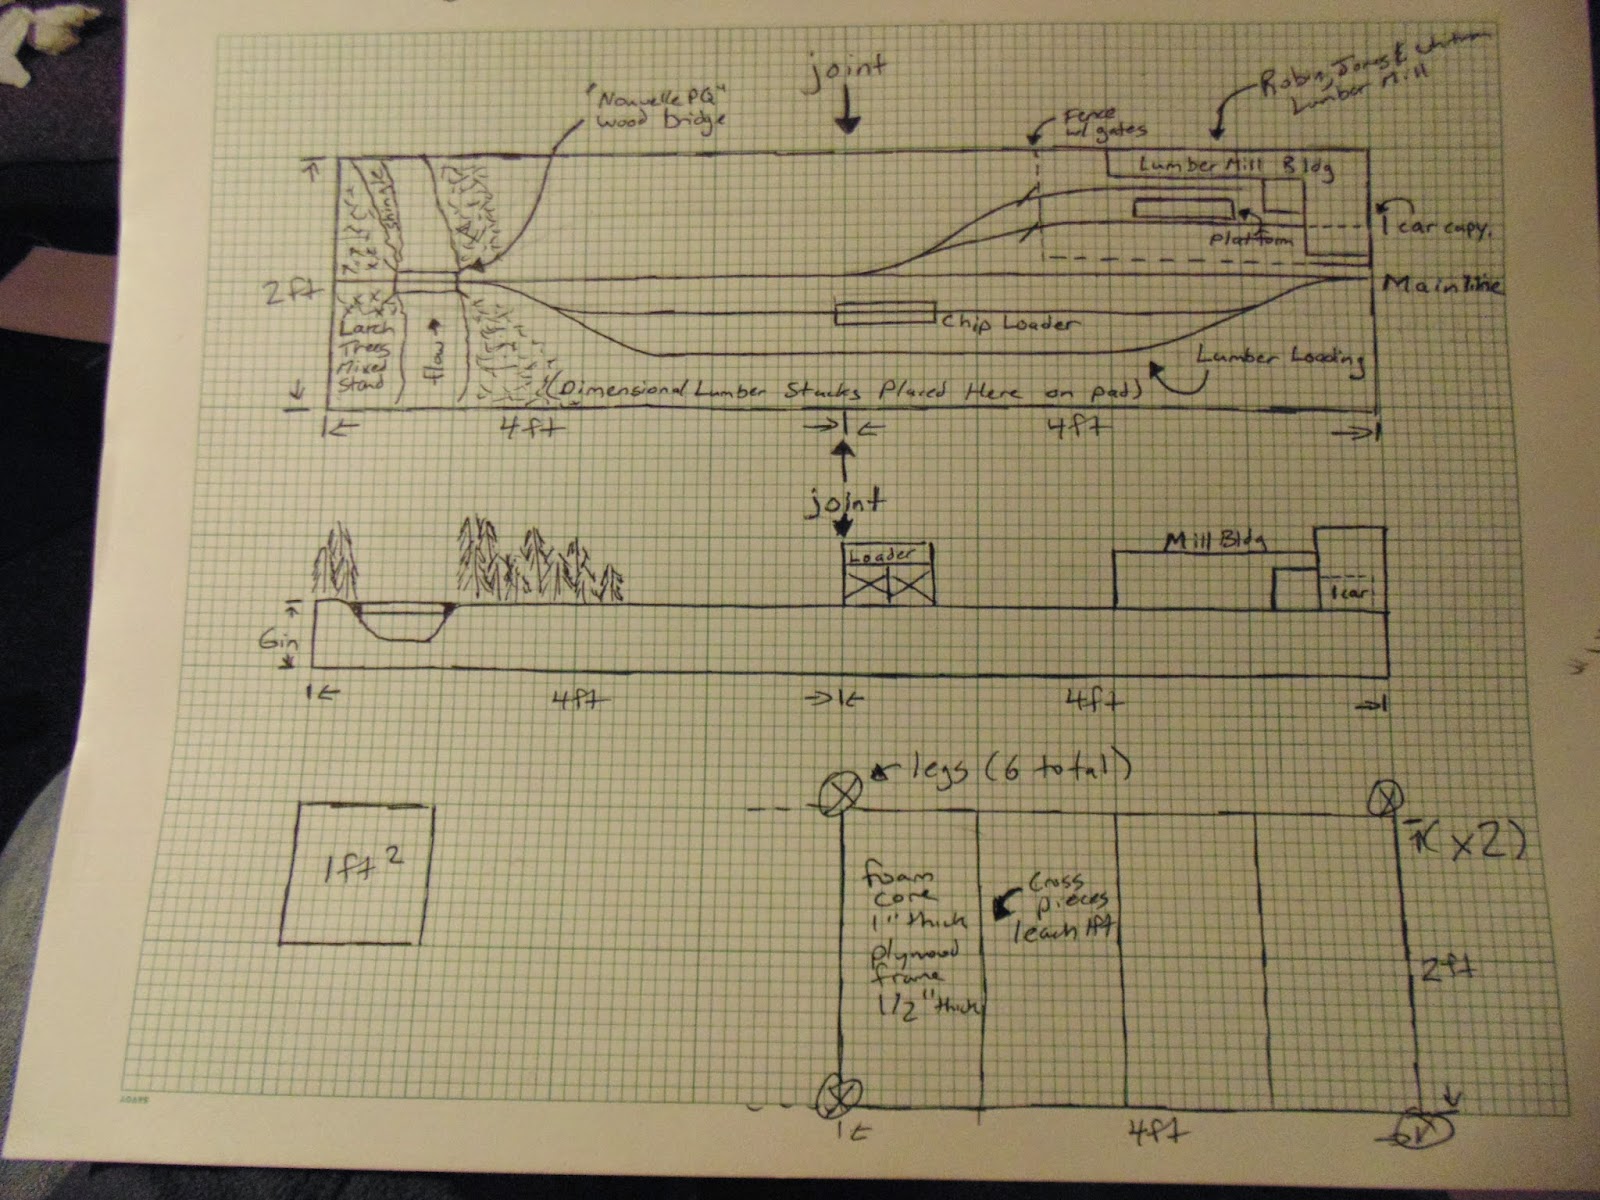 joint
"Nouvelle PQ"
wood bridge
Fence
w/ gates
Robin, Jones &
Lumber Mill
Lumber Mill Bldg
shingle
Platform
1 car capy.
2ft
Mainline
Chip Loader
Larch
Trees
Mixed
Stand
flow
Lumber Loading
(Dimensional Lumber Stacks Placed Here on pad)
4ft
4ft
joint
Loader
Mill Bldg
1 car
6in
4ft
4ft
legs (6 total)
(x2)
1ft²
foam
core
1" thick
plywood
frame
1/2" thick
cross
pieces
1 each 1ft
2ft
4ft